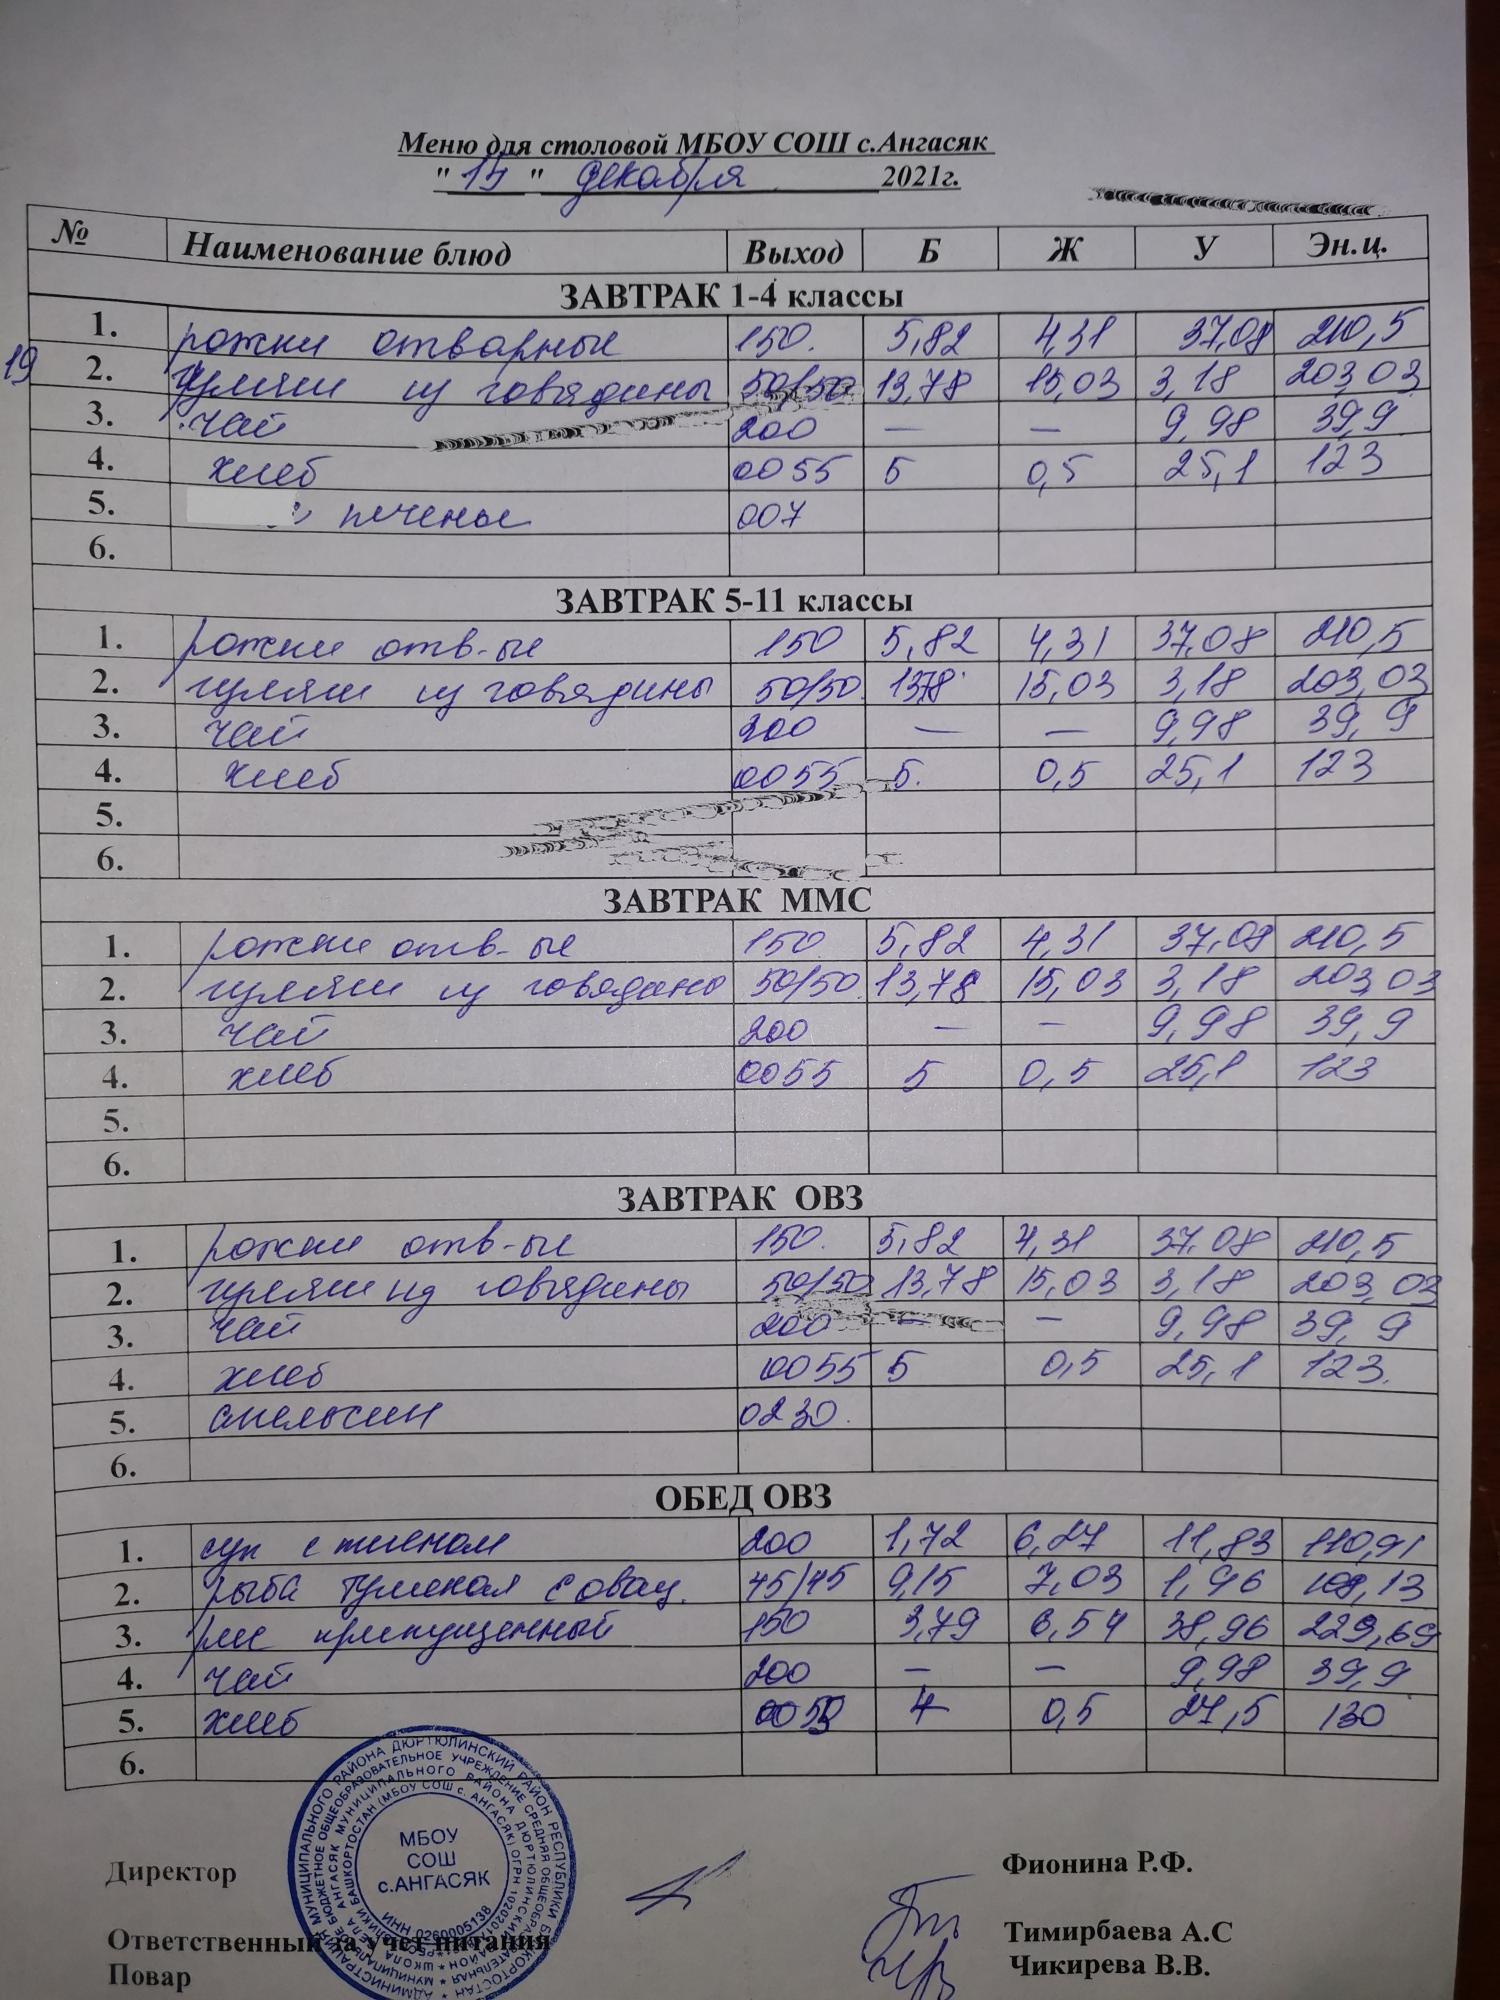 Меню для столовой МБОУ СОШ с.Ангасяк
"15" декабря 2021г.
№ Наименование блюд Выход Б Ж У Эн.ц.
ЗАВТРАК 1-4 классы
1. рожки отварные 150. 5,82 4,31 37,08 210,5
19
2. гуляш из говядины 50/50 13,78 15,03 3,18 203,03
3. чай 200 — — 9,98 39,9
4. хлеб 0055 5 0,5 25,1 123
5. печенье 007
6.
ЗАВТРАК 5-11 классы
1. рожки отв-ые 150 5,82 4,31 37,08 210,5
2. гуляш из говядины 50/50 13,78 15,03 3,18 203,03
3. чай 200 — — 9,98 39,9
4. хлеб 0055 5. 0,5 25,1 123
5.
6.
ЗАВТРАК ММС
1. рожки отв-ые 150 5,82 4,31 37,08 210,5
2. гуляш из говядины 50/50 13,78 15,03 3,18 203,03
3. чай 200 — — 9,98 39,9
4. хлеб 0055 5 0,5 25,1 123
5.
6.
ЗАВТРАК ОВЗ
1. рожки отв-ые 150. 5,82 4,31 37,08 210,5
2. гуляш из говядины 50/50 13,78 15,03 3,18 203,03
3. чай 200 — — 9,98 39,9
4. хлеб 0055 5 0,5 25,1 123.
5. апельсин 0230.
6.
ОБЕД ОВЗ
1. суп с пшеном 200 1,72 6,27 11,83 110,91
2. рыба тушеная с овощ. 45/45 9,15 7,03 1,96 109,13
3. рис припущенный 150 3,79 6,54 38,96 229,69
4. чай 200 — — 9,98 39,9
5. хлеб 4 0,5 27,5 130
6.
МБОУ
СОШ
с.АНГАСЯК
ИНН 0260005138
Директор Фионина Р.Ф.
Ответственный за учет питания Тимирбаева А.С
Повар Чикирева В.В.